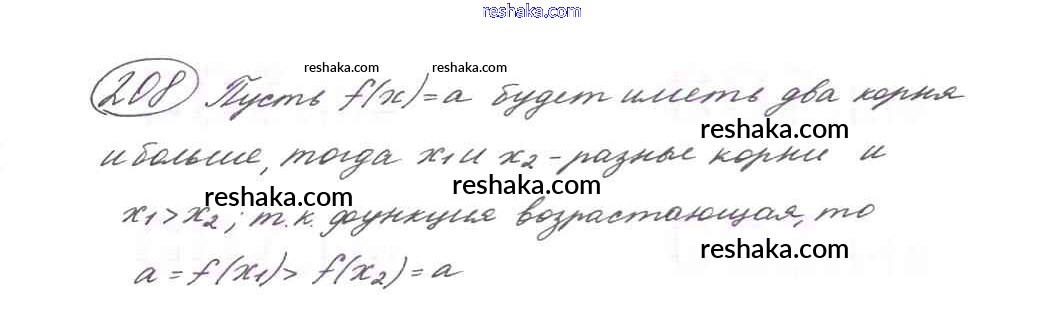 reshaka.com
reshaka.com reshaka.com
208 Пусть f(x)=a будет иметь два корня
reshaka.com
и больше, тогда x1 и x2 - разные корни и
reshaka.com reshaka.com
x1 > x2; т.к. функция возрастающая, то
reshaka.com
a = f(x1) > f(x2) = a